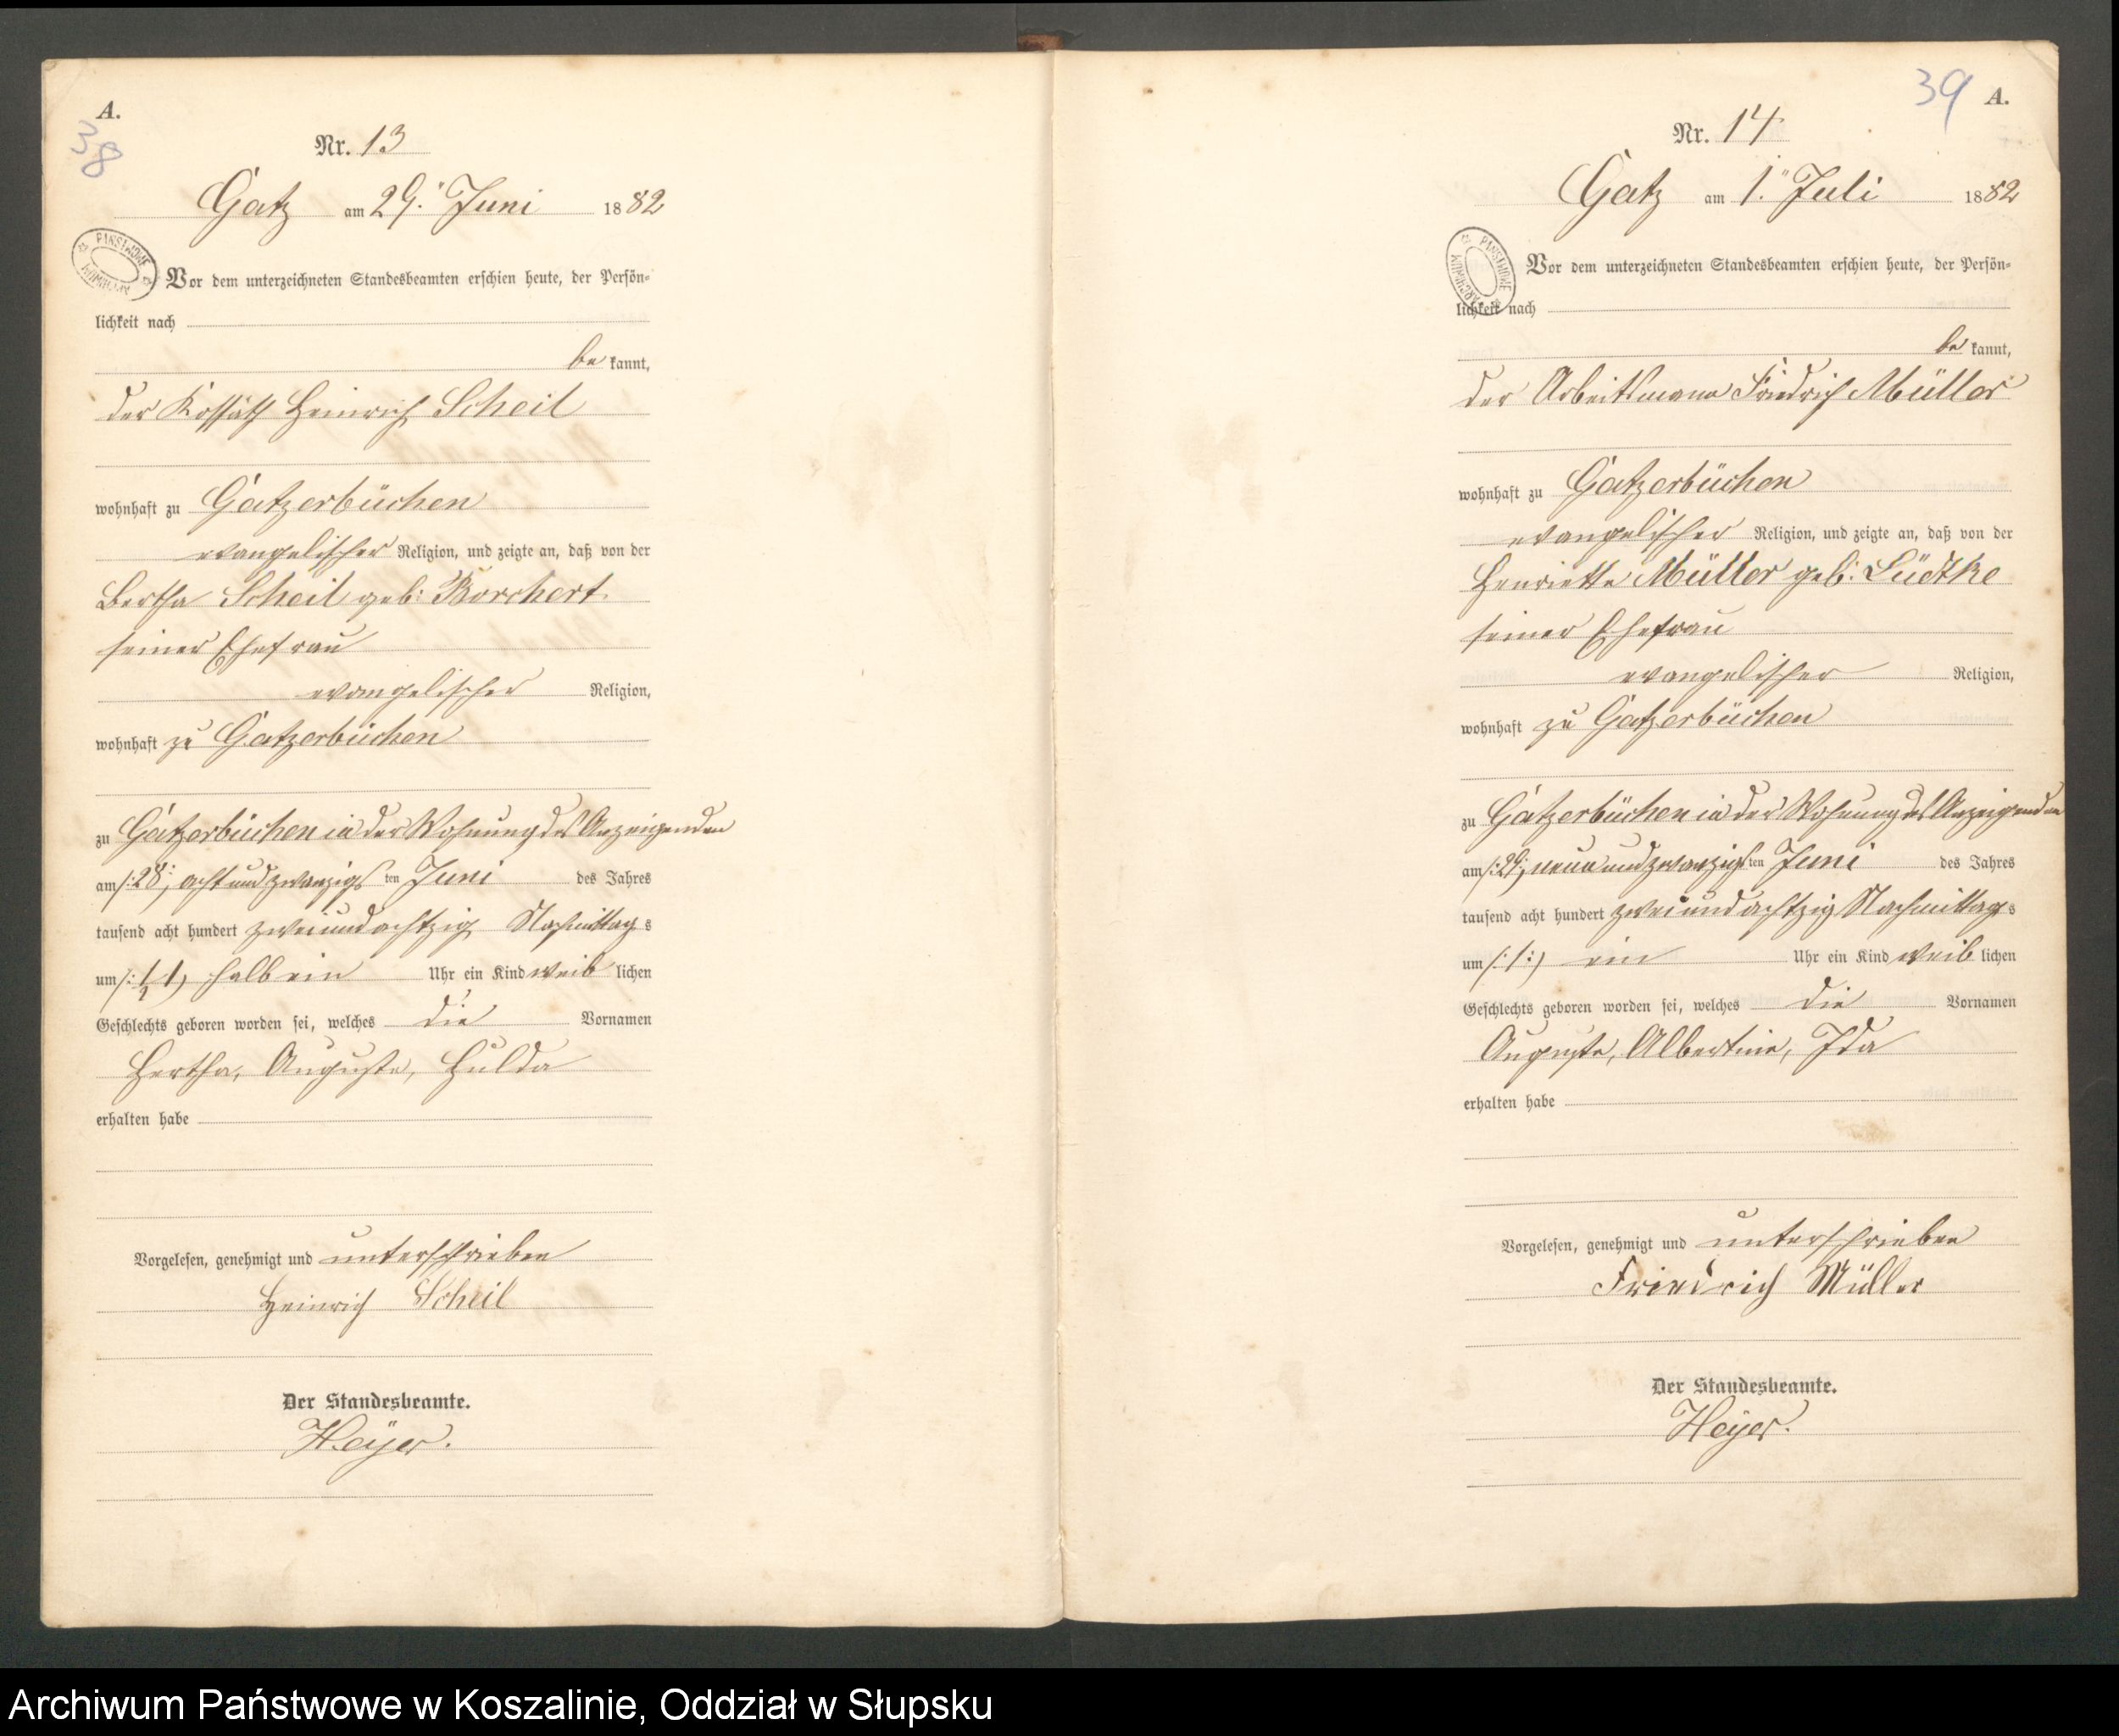 A.
38
Nr. 13
Gatz am 29. Juni 1882
PAŃSTWOWE ARCHIWUM
Vor dem unterzeichneten Standesbeamten erschien heute, der Persön-
lichkeit nach
be kannt,
der Kossäth Heinrich Scheil
wohnhaft zu Gatzerbüchen
evangelischer Religion, und zeigte an, daß von der
Bertha Scheil geb: Borchert
seiner Ehefrau
evangelischer Religion,
wohnhaft zu Gatzerbüchen
zu Gatzerbüchen in der Wohnung des Anzeigenden
am /:28:/ acht und zwanzigsten Juni des Jahres
tausend acht hundert zwei und achtzig Nachmittags
um /:½1:/ halb ein Uhr ein Kind weiblichen
Geschlechts geboren worden sei, welches die Vornamen
Hertha, Auguste, Hulda
erhalten habe
Vorgelesen, genehmigt und unterschrieben
Heinrich Scheil
Der Standesbeamte.
Heyer.
39 A.
Nr. 14
Gatz am 1. Juli 1882
PAŃSTWOWE ARCHIWUM
Vor dem unterzeichneten Standesbeamten erschien heute, der Persön-
lichkeit nach
be kannt,
der Arbeitsmann Friedrich Müller
wohnhaft zu Gatzerbüchen
evangelischer Religion, und zeigte an, daß von der
Henriette Müller geb: Lüdtke
seiner Ehefrau
evangelischer Religion,
wohnhaft zu Gatzerbüchen
zu Gatzerbüchen in der Wohnung des Anzeigenden
am /:29:/ neun und zwanzigsten Juni des Jahres
tausend acht hundert zwei und achtzig Nachmittags
um /:1:/ ein Uhr ein Kind weiblichen
Geschlechts geboren worden sei, welches die Vornamen
Auguste, Albertine, Ida
erhalten habe
Vorgelesen, genehmigt und unterschrieben
Friedrich Müller
Der Standesbeamte.
Heyer.
Archiwum Państwowe w Koszalinie, Oddział w Słupsku